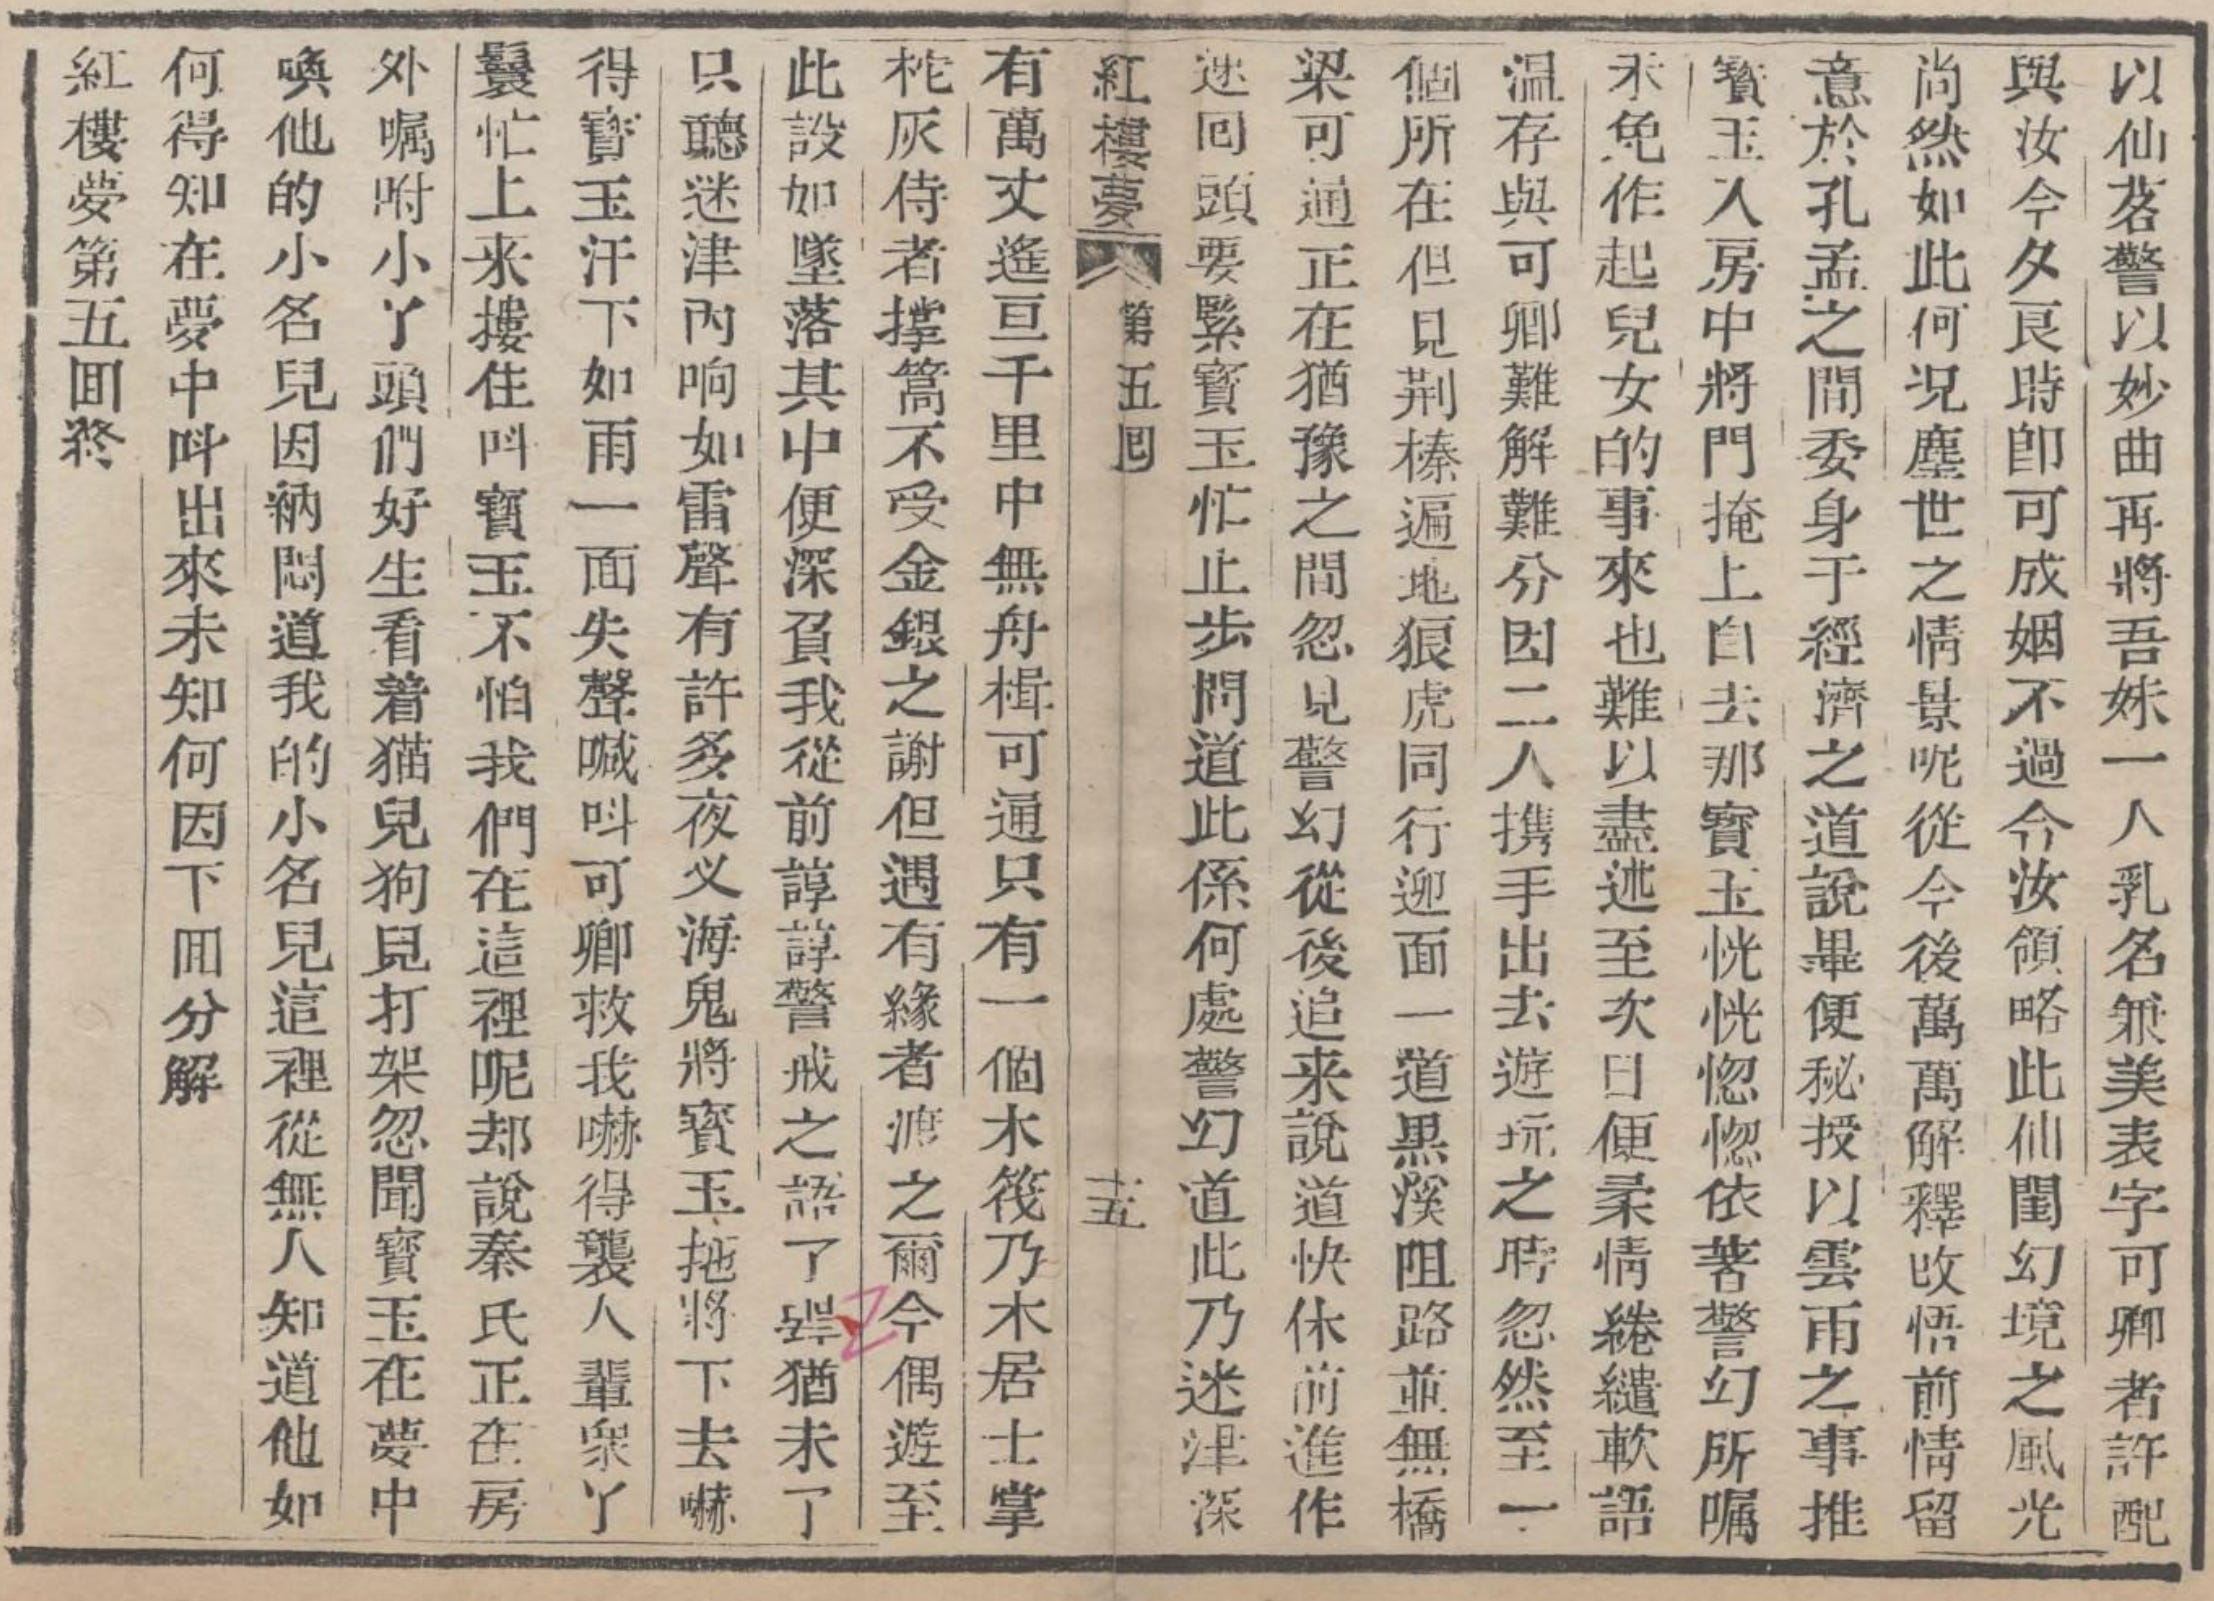 以仙茗警以妙曲再將吾妹一人乳名兼美表字可卿者許配
與汝今夕良時卽可成姻不過令汝領略此仙閨幻境之風光
尚然如此何况塵世之情景呢從今後萬萬解釋改悟前情留
意於孔孟之間委身于經濟之道說畢便秘授以雲雨之事推
寳玉入房中將門掩上自去那寳玉恍恍惚惚依著警幻所嘱
未免作起兒女的事來也難以盡述至次日便柔情綣繾軟語
温存與可卿難解難分因二人携手出去遊玩之時忽然至一
個所在但見荆榛遍地狼虎同行迎面一道黒溪阻路並無橋
梁可通正在猶豫之間忽見警幻從後追来說道快休前進作
速回頭要緊寳玉忙止步問道此係何處警幻道此乃迷津深
紅樓夢 第五囘 十五
有萬丈遙亘千里中無舟楫可通只有一個木筏乃木居士掌
柁灰侍者撑篙不受金銀之謝但遇有緣者渡之爾今偶遊至
此設如墜落其中便深負我從前諄諄警戒之語了話猶未了
只聽迷津內响如雷聲有許多夜义海鬼將寳玉拖將下去嚇
得寳玉汗下如雨一面失聲喊呌可卿救我嚇得襲人輩衆丫
鬟忙上来摟住呌寳玉不怕我們在這裡呢却說秦氏正在房
外嘱咐小丫頭們好生看着猫兒狗兒打架忽聞寳玉在夢中
喚他的小名兒因納悶道我的小名兒這裡從無人知道他如
何得知在夢中呌出來未知何因下囬分解
紅樓夢第五囬終